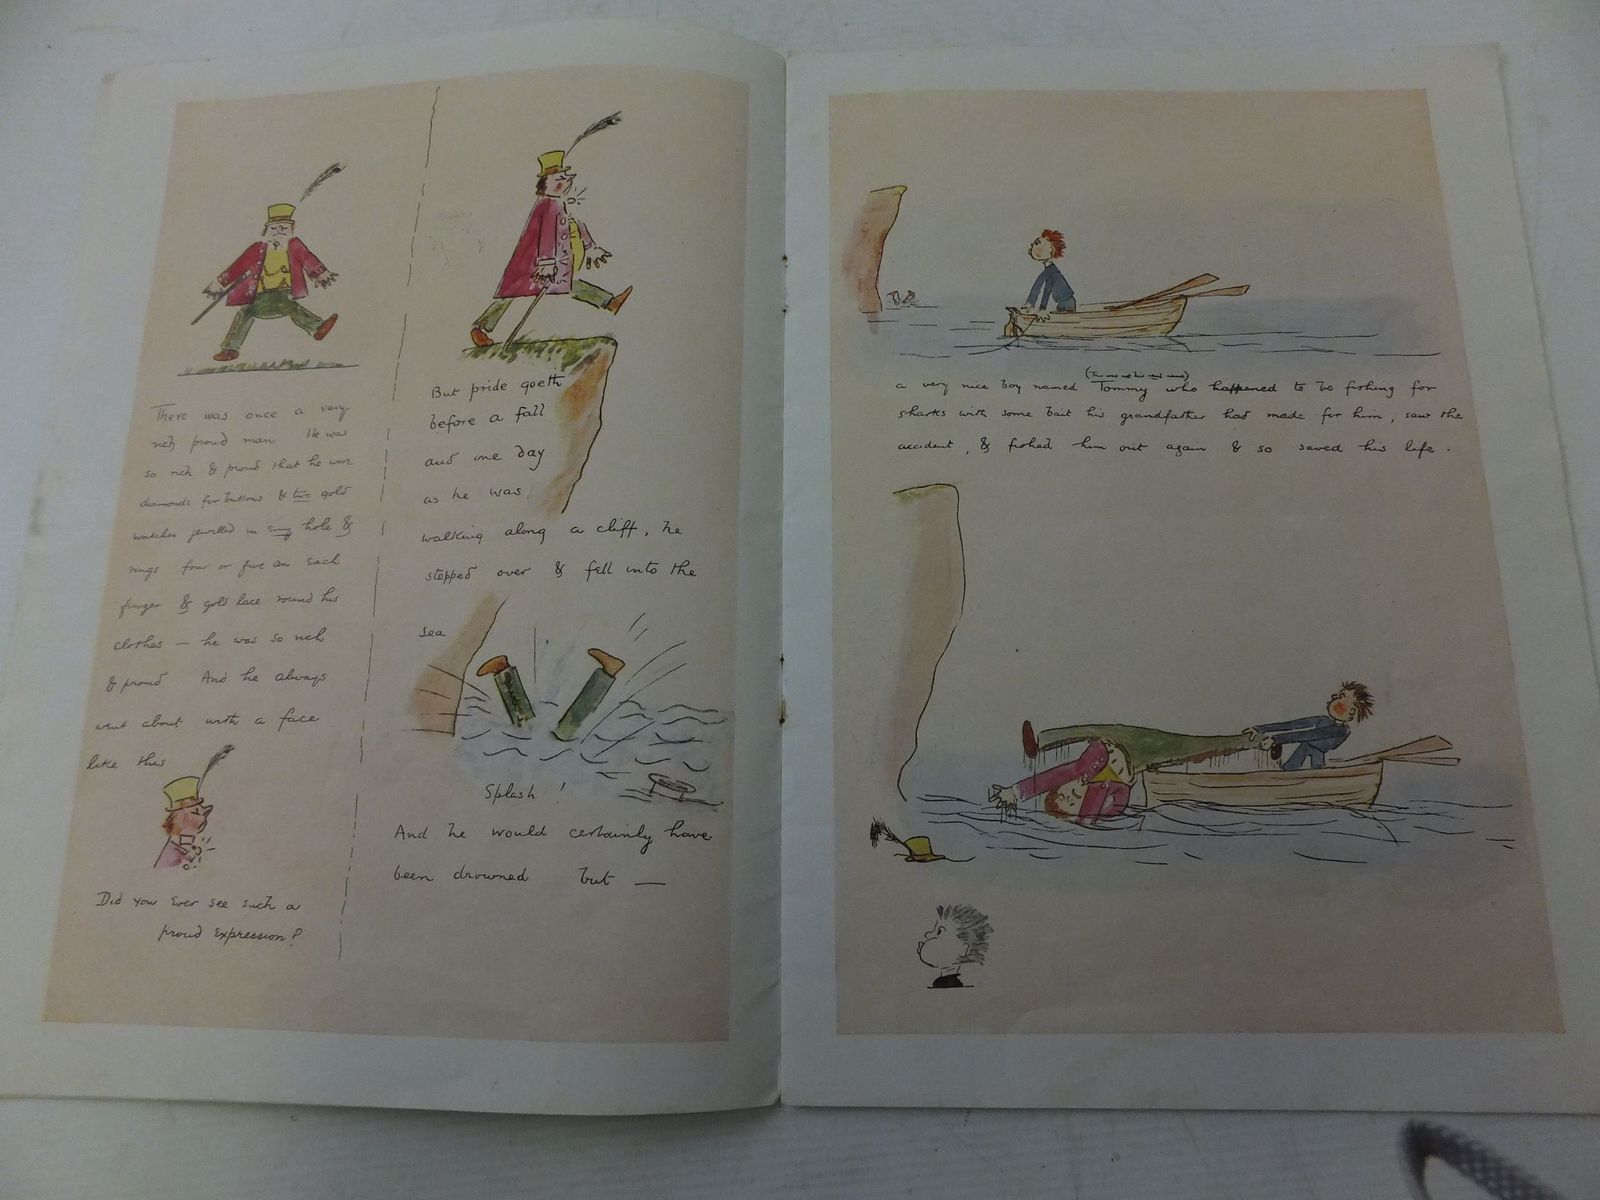 There was once a very
rich proud man He was
so rich & proud that he wore
diamonds for buttons & two gold
watches jewelled in every hole &
rings four or five on each
finger & gold lace round his
clothes — he was so rich
& proud And he always
went about with a face
like this
Did you ever see such a
proud expression?
But pride goeth
before a fall
and one day
as he was
walking along a cliff, he
stepped over & fell into the
sea
Splash !
And he would certainly have
been drowned but —
(This was not his real name)
a very nice boy named Tommy who happened to be fishing for
sharks with some bait his grandfather had made for him, saw the
accident, & fished him out again & so saved his life.